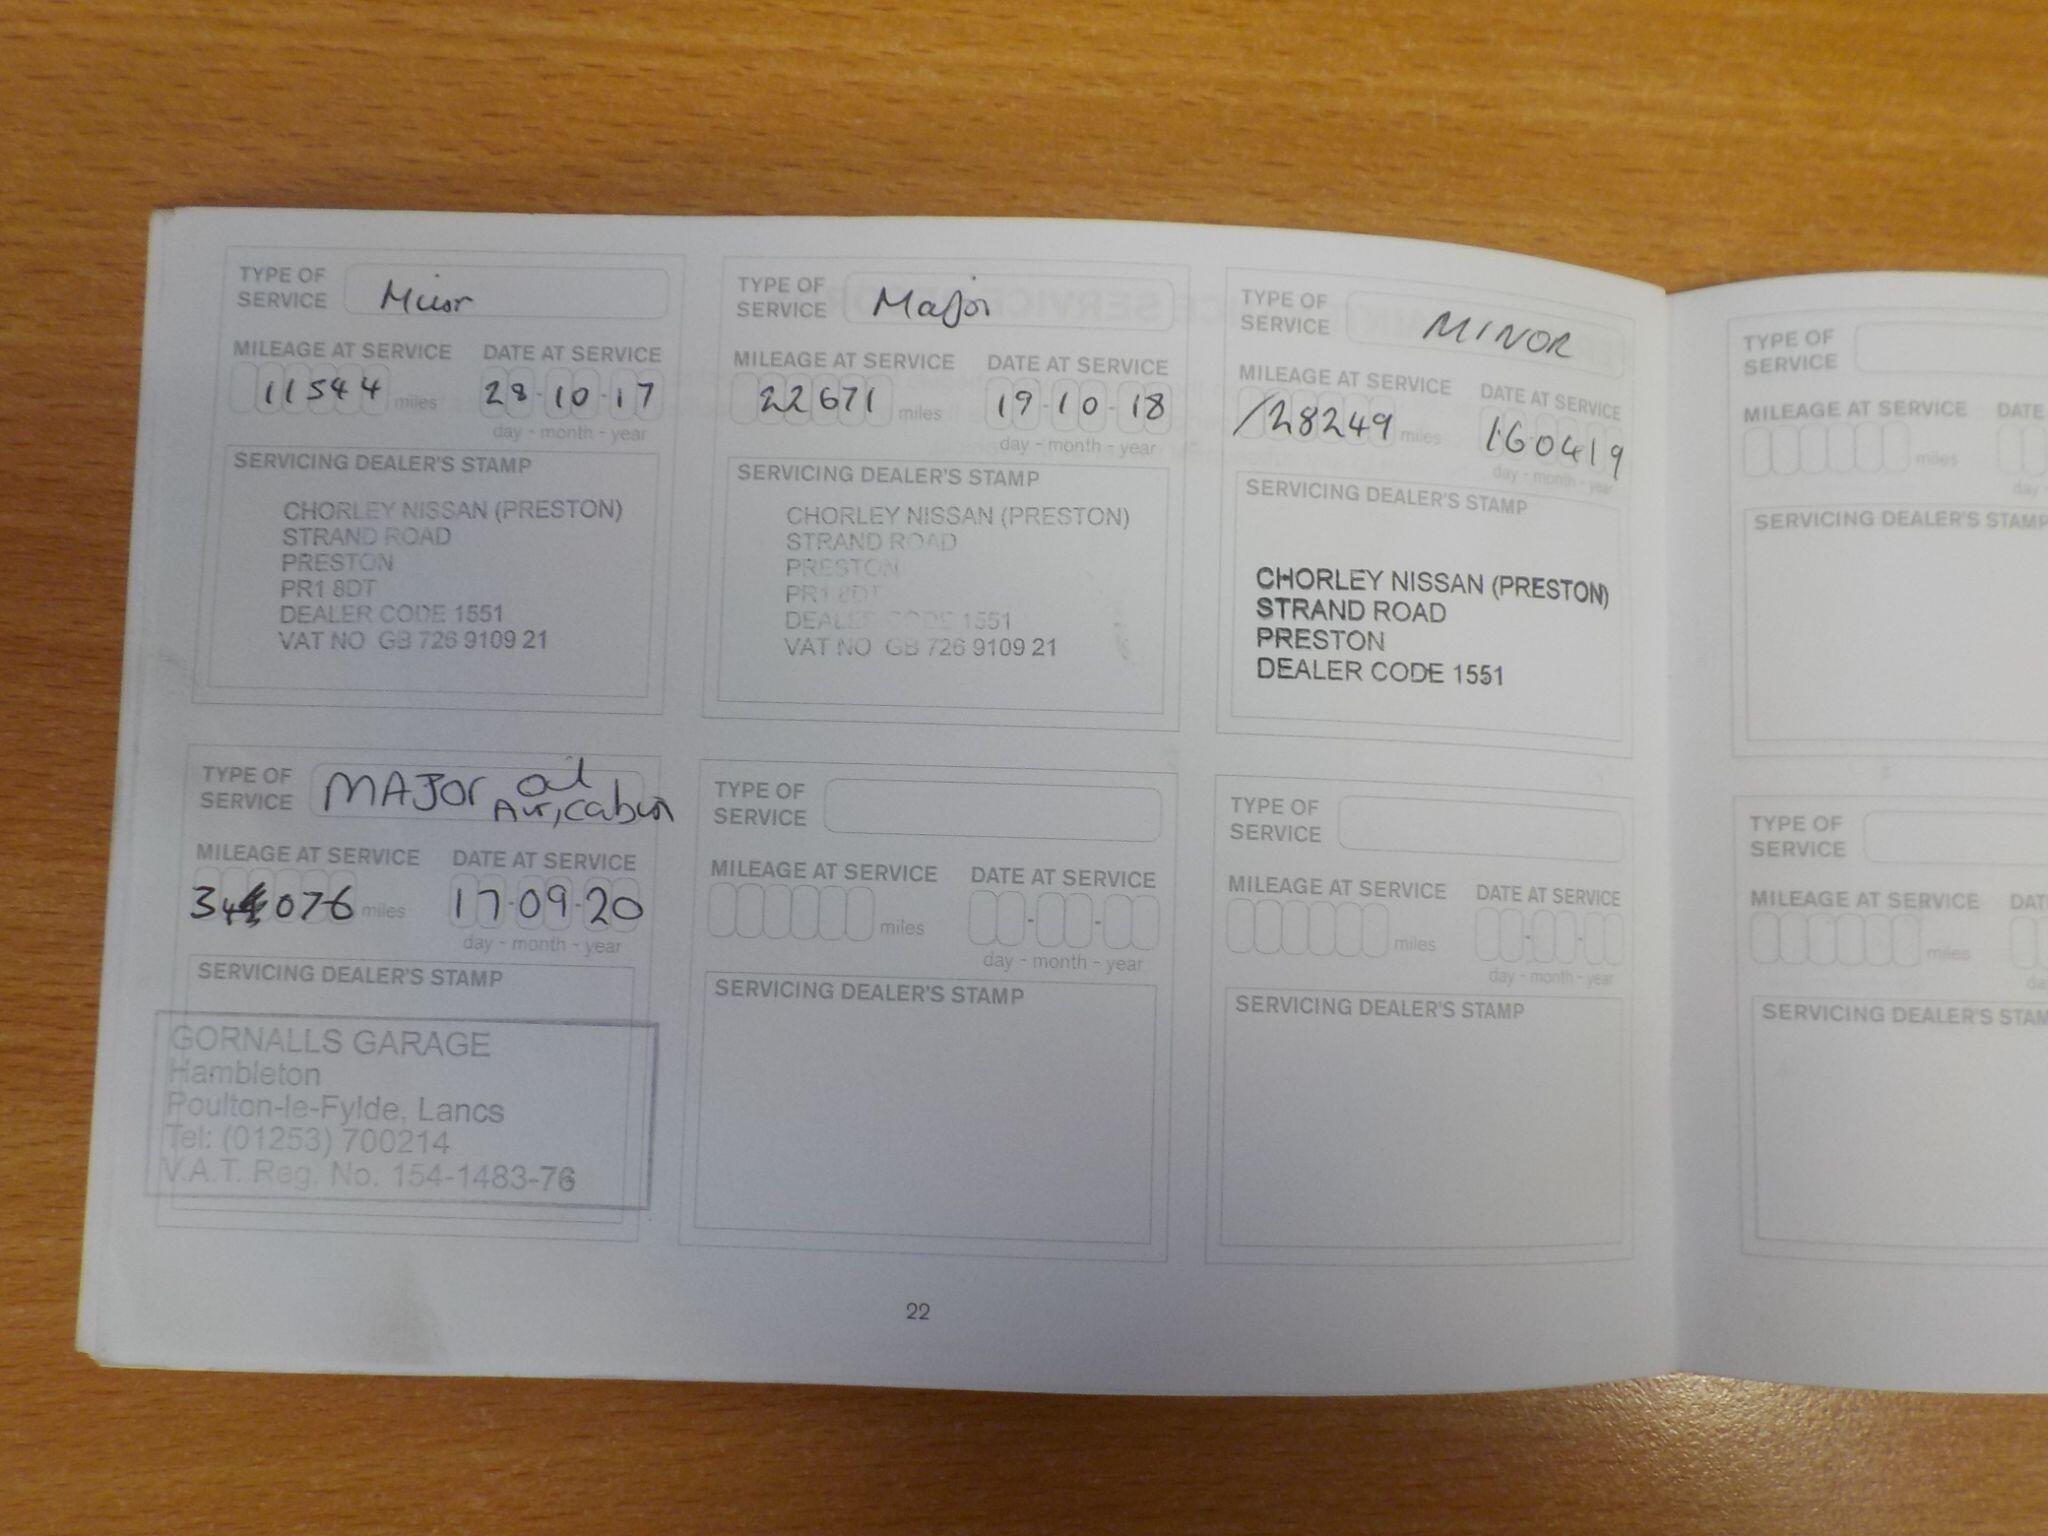 TYPE OF
SERVICE
Minor
MILEAGE AT SERVICE
DATE AT SERVICE
11544 miles
28-10-17
day - month - year
SERVICING DEALER'S STAMP
CHORLEY NISSAN (PRESTON)
STRAND ROAD
PRESTON
PR1 8DT
DEALER CODE 1551
VAT NO GB 726 9109 21
TYPE OF
SERVICE
Major
MILEAGE AT SERVICE
DATE AT SERVICE
22671 miles
19-10-18
day - month - year
SERVICING DEALER'S STAMP
CHORLEY NISSAN (PRESTON)
STRAND ROAD
PRESTON
PR1 8DT
DEALER CODE 1551
VAT NO GB 726 9109 21
TYPE OF
SERVICE
MINOR
MILEAGE AT SERVICE
DATE AT SERVICE
/28249 miles
160419
day - month - year
SERVICING DEALER'S STAMP
CHORLEY NISSAN (PRESTON)
STRAND ROAD
PRESTON
DEALER CODE 1551
TYPE OF
SERVICE
MILEAGE AT SERVICE
DATE
miles
day
SERVICING DEALER'S STAMP
TYPE OF
SERVICE
MAJOR oil
Air, cabin
MILEAGE AT SERVICE
DATE AT SERVICE
34076 miles
17-09-20
day - month - year
SERVICING DEALER'S STAMP
GORNALLS GARAGE
Hambleton
Poulton-le-Fylde, Lancs
Tel: (01253) 700214
V.A.T. Reg. No. 154-1483-76
TYPE OF
SERVICE
MILEAGE AT SERVICE
DATE AT SERVICE
miles
day - month - year
SERVICING DEALER'S STAMP
TYPE OF
SERVICE
MILEAGE AT SERVICE
DATE AT SERVICE
miles
day - month - year
SERVICING DEALER'S STAMP
TYPE OF
SERVICE
MILEAGE AT SERVICE
DAT
miles
da
SERVICING DEALER'S STAM
22